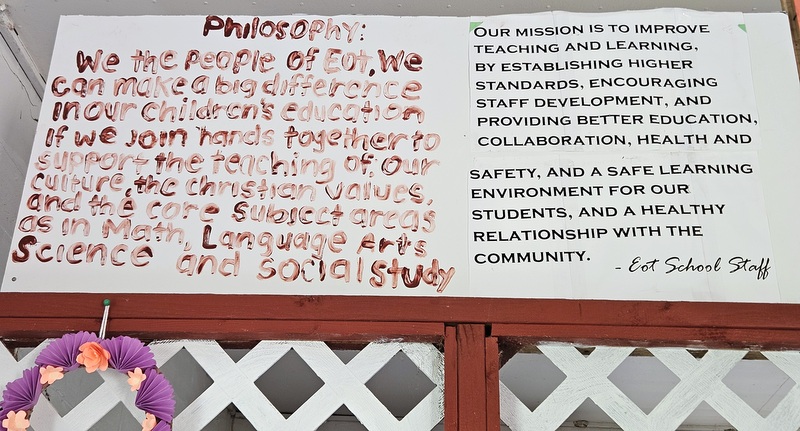 Philosophy:
We the people of Eot, We
can make a big difference
in our children's education
if we join hands together to
support the teaching of, our
culture, the christian values,
and the core subject areas
as in Math, Language Arts
Science and social study
OUR MISSION IS TO IMPROVE
TEACHING AND LEARNING,
BY ESTABLISHING HIGHER
STANDARDS, ENCOURAGING
STAFF DEVELOPMENT, AND
PROVIDING BETTER EDUCATION,
COLLABORATION, HEALTH AND
SAFETY, AND A SAFE LEARNING
ENVIRONMENT FOR OUR
STUDENTS, AND A HEALTHY
RELATIONSHIP WITH THE
COMMUNITY.
- Eot School Staff